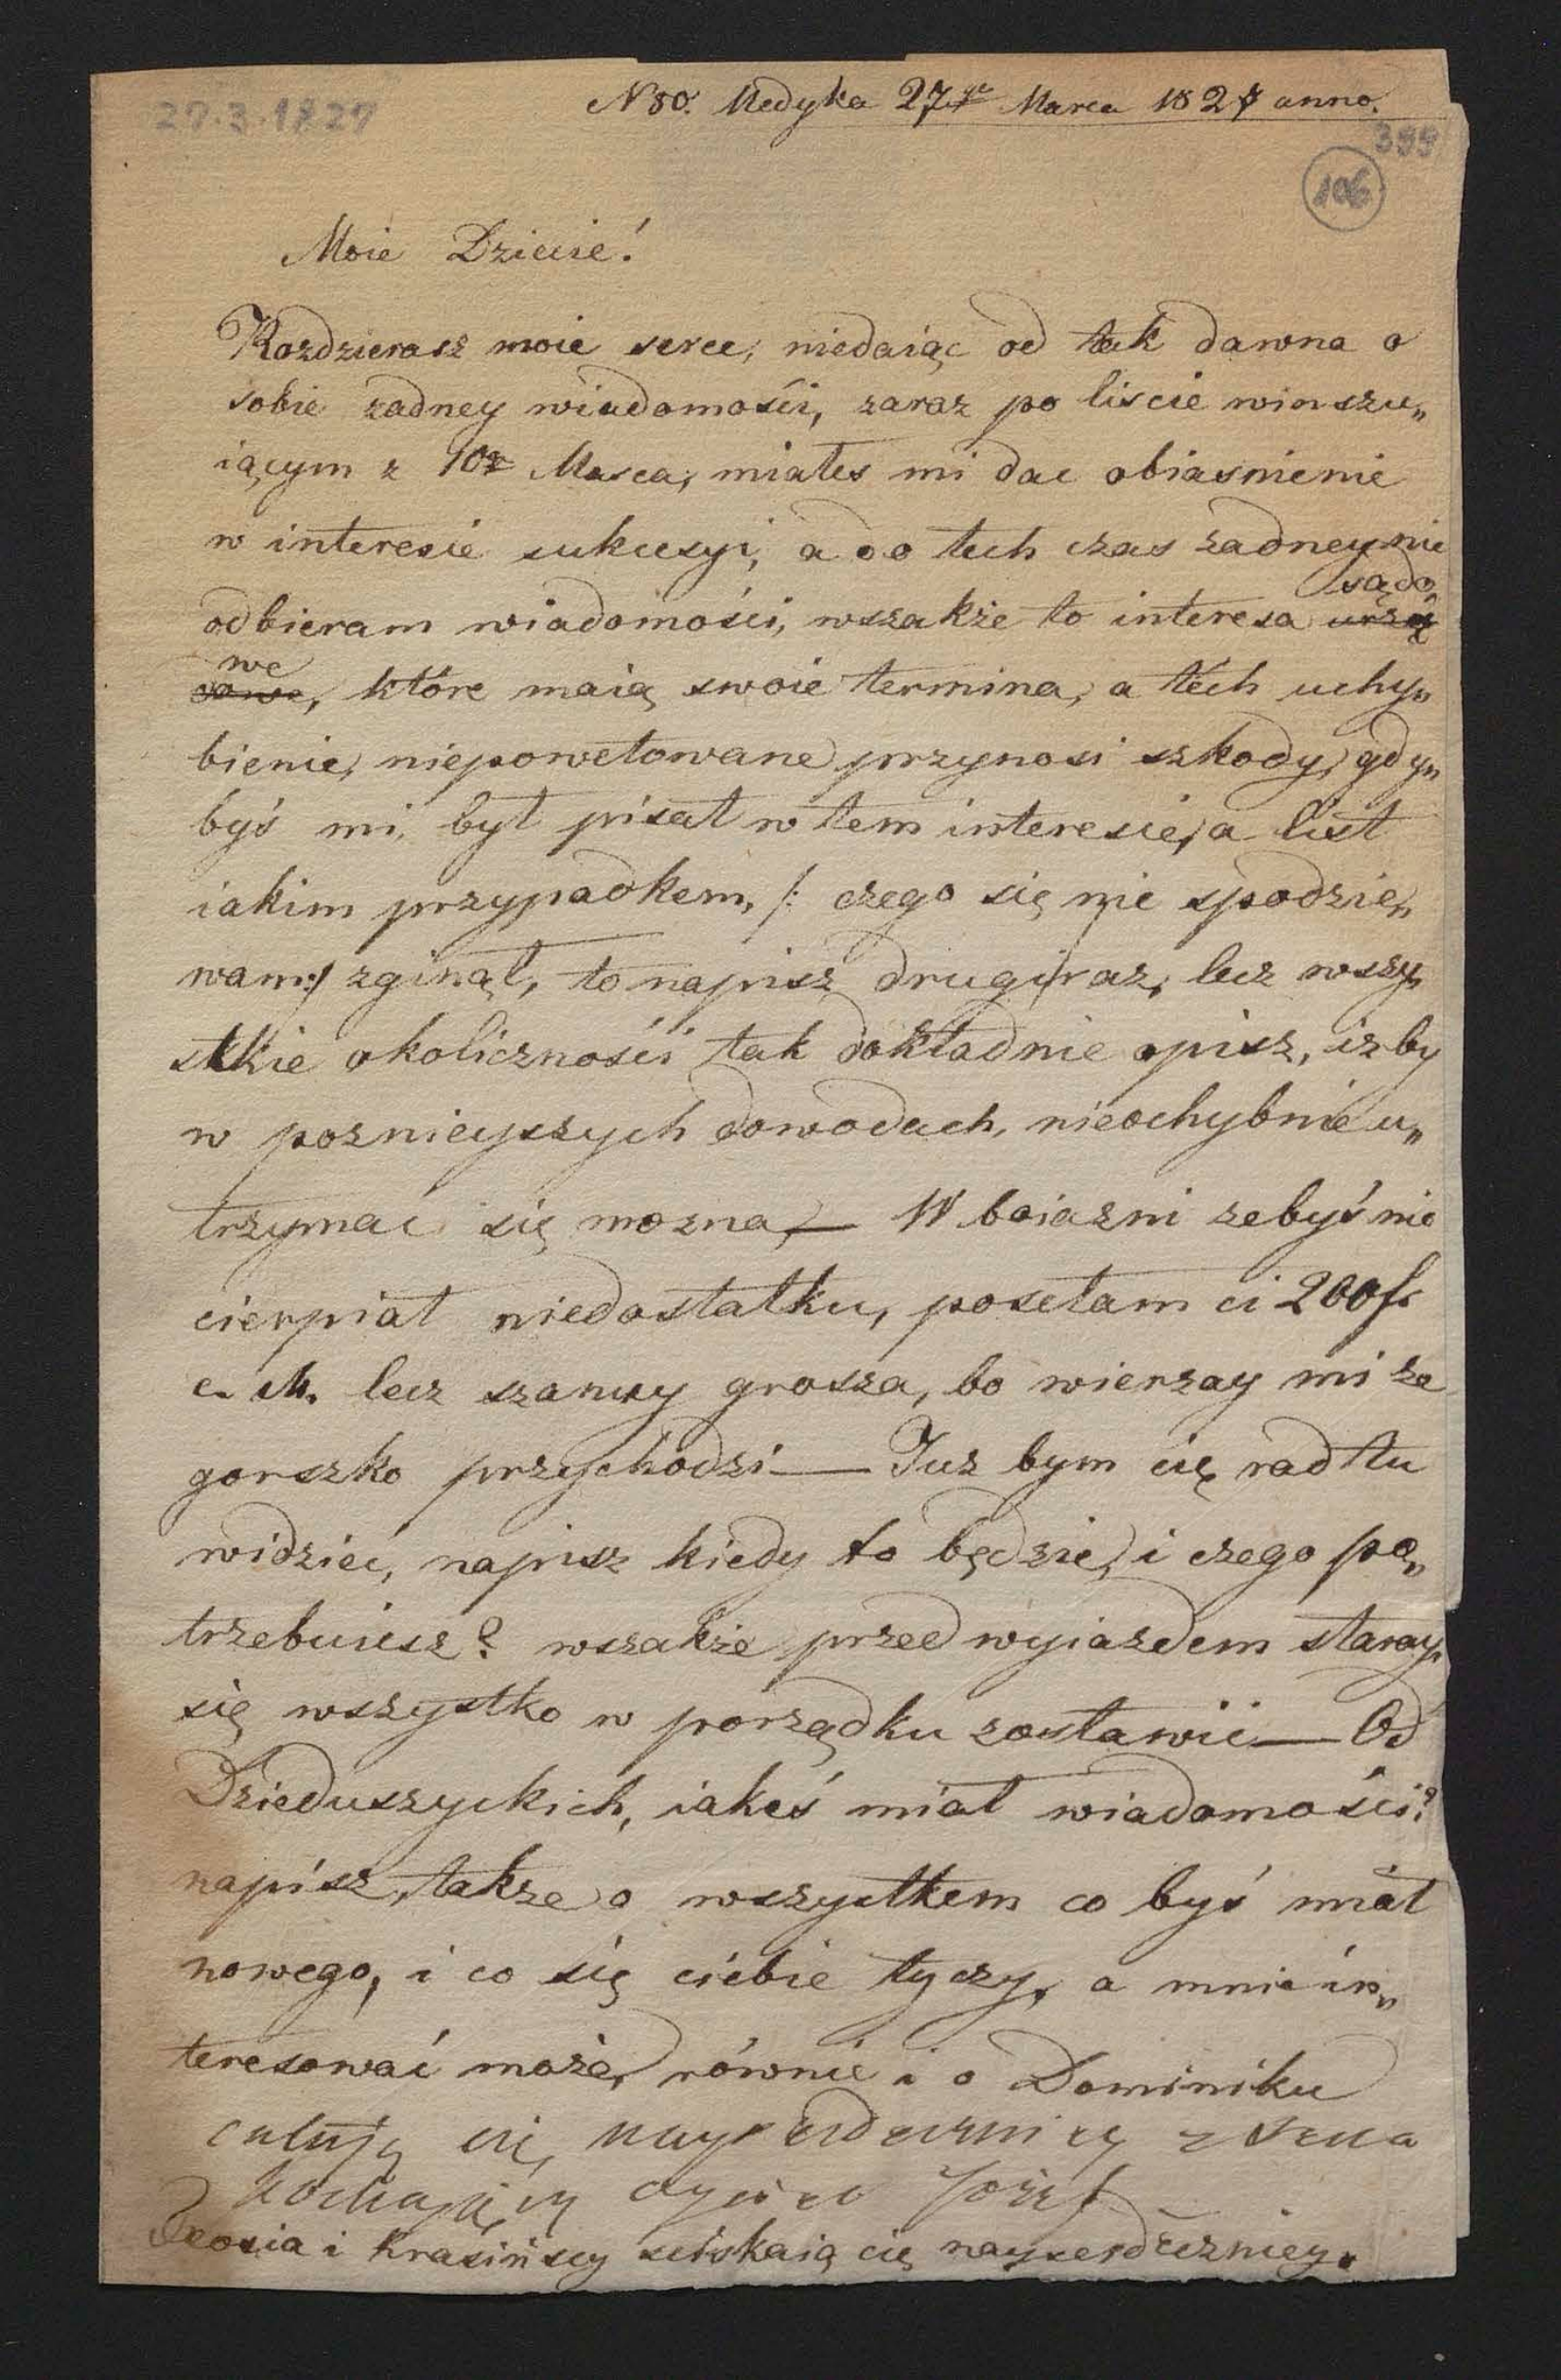 27.3.1827
N 80. Medyka 27go Marca 1827 anno.
399
106
Moie Dziecie!
Rozdzierasz moie serce, niedaiąc od tak dawna o
sobie zadney wiadomości, zaraz po liscie winszu„
iącym z 10go Marca, miałes mi dac obiasnienie
w interesie sukcesyi, a do tech czas zadney nie
sądo„
odbieram wiadomości, wszakże to interesa urzę
we
dowe, które maią swoie termina, a téch uchy„
bienie, niepowetowane przynosi szkody, gdy„
byś mi, był pisał w tem interesie, a list
iakim przypadkem, /: czego się nie spodzie„
wam :/ zginął, to napisz drugi raz, lecz wszy„
stkie okoliczności tak dokładnie opisz, izby
w poznieyszych dowodach, nieochybnie u„
trzymać się mozna, — W boiazni zebyś nie
cierpiał niedostatku, posełam ci 200 fr
c. M. lecz szanuy grosza, bo wierzay mi ze
gorszko przychodzi — Juz bym cię rad tu
widzieć, napisz kiedy to będzie, i czego po„
trzebuiesz? wszakże przed wyiazdem staray
się wszystko w porządku zostawić — Od
Dzieduszyckich, iakeś miał wiadomości?
napisz, takze o wszystkem co byś miał
nowego, i co się ciebie tyczy, a mnie in„
teresować może, równie i o Dominiku
całuję cię, nayserdeczniey z serca
kochający oyciec Józef
Teosia i Krasińscy sciskaią cię nayserdeczniey.